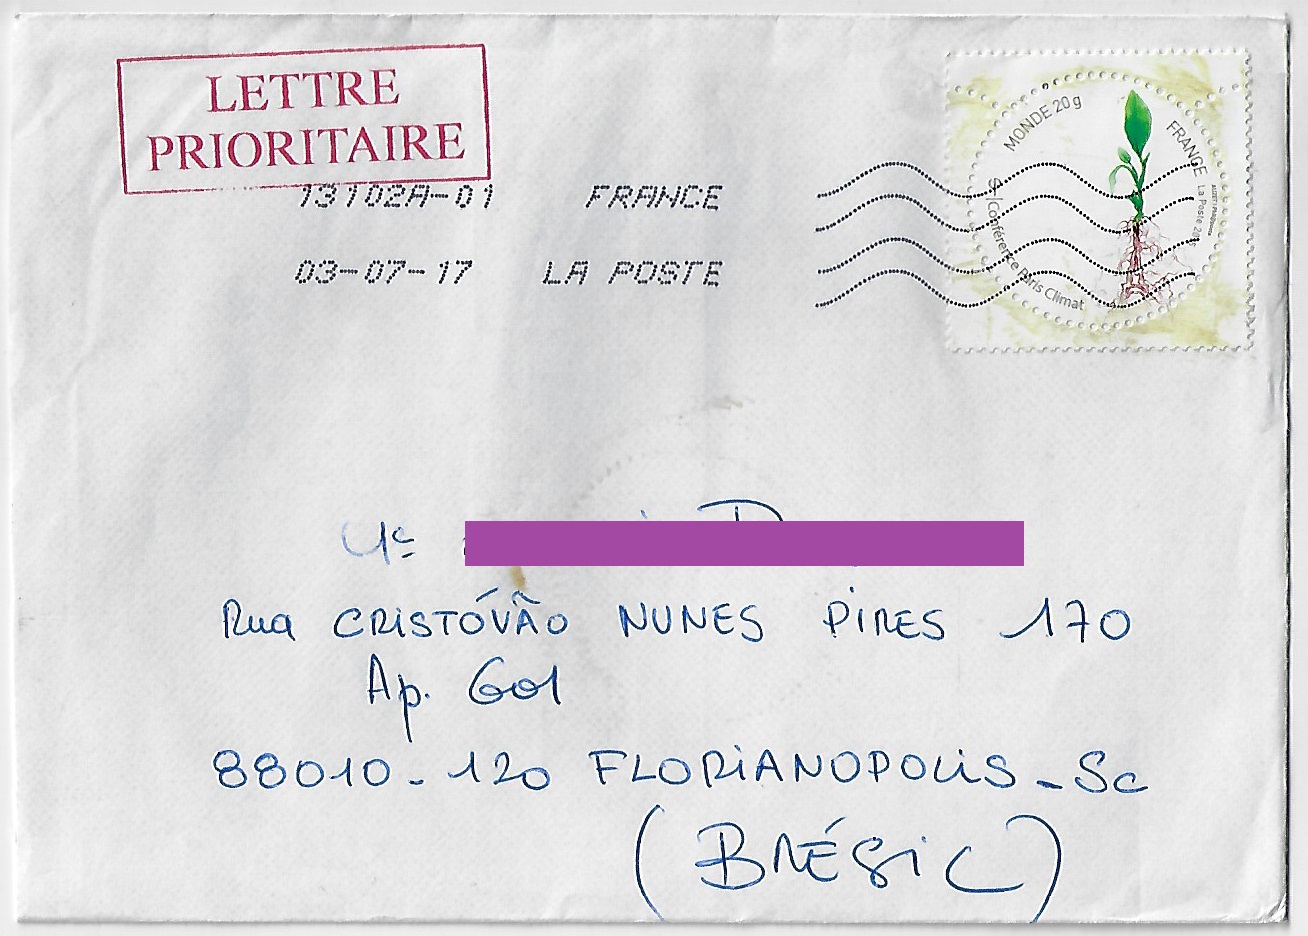 LETTRE
PRIORITAIRE
13102A-01 FRANCE
03-07-17 LA POSTE
MONDE 20g
FRANCE
La Poste
Conférence Paris Climat
Rua CRISTÓVÃO NUNES PIRES 170
Ap. 601
88010-120 FLORIANOPOLIS-SC
(BRÉSIL)